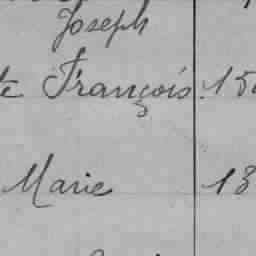 Joseph
te François 15
Marie 13